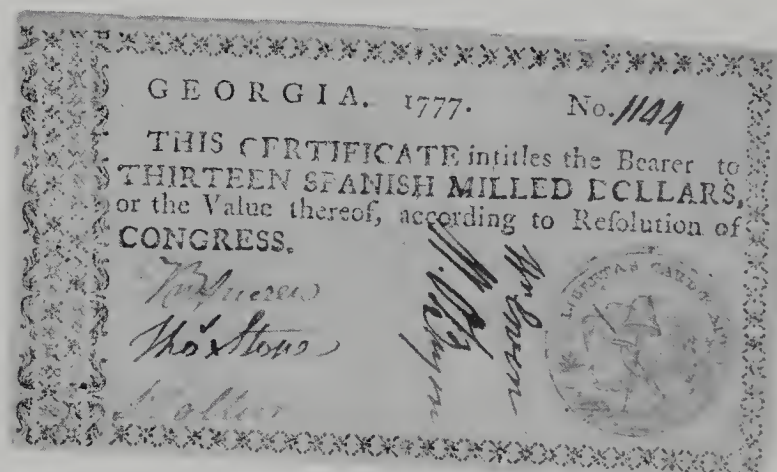 GEORGIA. 1777. No. 1144
THIS CERTIFICATE intitles the Bearer to
THIRTEEN SPANISH MILLED DOLLARS,
or the Value thereof, according to Reſolution of
CONGRESS.
Thoˢ Stone
LIBERTAS CARIOR